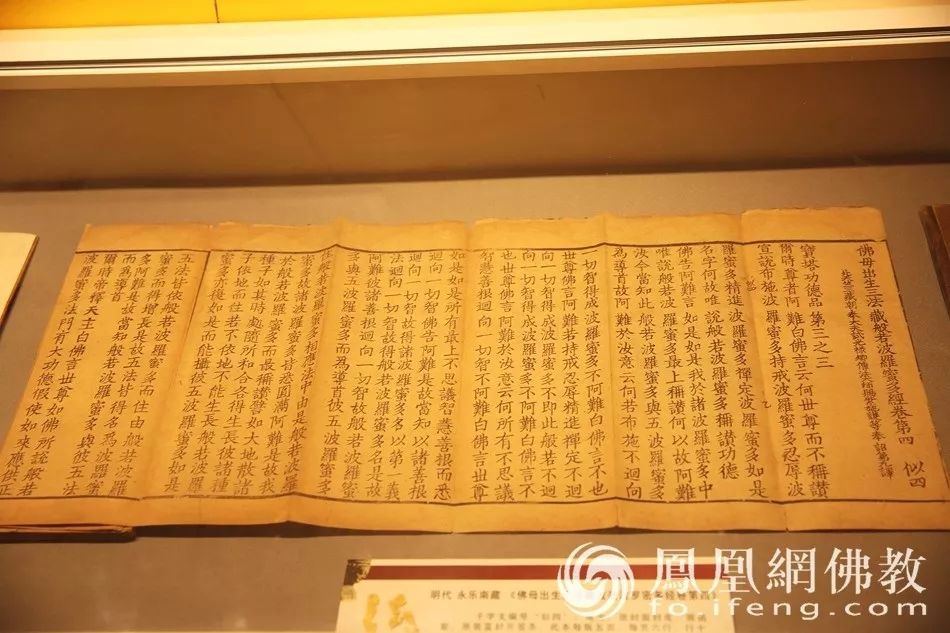 佛母出生三法藏般若波羅蜜多經卷第四 似四
三藏朝奉大夫試光祿卿傳法大師賜紫臣施護等奉 詔譯
寶塔功德品第三之三
爾時尊者阿難白佛言云何世尊而不稱讚
宣說布施波羅蜜多持戒波羅蜜多忍辱波
羅蜜多精進波羅蜜多禪定波羅蜜多如是
名字何故唯說般若波羅蜜多稱讚功德
佛告阿難言如是如是我於諸波羅蜜多中
唯說般若波羅蜜多最上稱讚何以故阿難
汝今當知此般若波羅蜜多與五波羅蜜多
為導首故阿難於汝意云何若布施不迴向
一切智得成波羅蜜多不阿難白佛言不也
世尊佛言阿難若持戒忍辱精進禪定不迴
向一切智得成波羅蜜多不即此般若不迴
向一切智得成波羅蜜多不阿難白佛言不
也世尊佛言阿難於汝意云何所有不思議
智慧善根迴向一切智不阿難白佛言世尊
如是如是所有最上不思議智慧善根而悉
迴向一切智佛告阿難是故當知以諸善根
迴向一切智故得諸波羅蜜多名以第一義
法迴向一切智故得般若波羅蜜多名是故
阿難彼諸善根迴向一切智故般若波羅蜜
多與五波羅蜜多而為導首彼五波羅蜜多
住般若波羅蜜多相應法中由是般若波羅
蜜多故諸波羅蜜多皆悉圓滿阿難是故我
於般若波羅蜜多而最稱讚譬如大地散種
種子如其時處隨所和合得生長彼諸種
子依地而住若不依地不能生長般若波羅
蜜多亦復如是而能攝彼五波羅蜜多
五法皆依般若波羅蜜多而住由般若波羅
蜜多而得增長是故五法皆得名為波羅蜜
多阿難是故當知般若波羅蜜多與彼五法
而為導首
爾時帝釋天主白佛言世尊如佛所說般若
波羅蜜多法門有大功德假使如來應供正
明代 永乐南藏 《佛母出生 罗密多经卷第四》
鳳凰網佛教
fo.ifeng.com